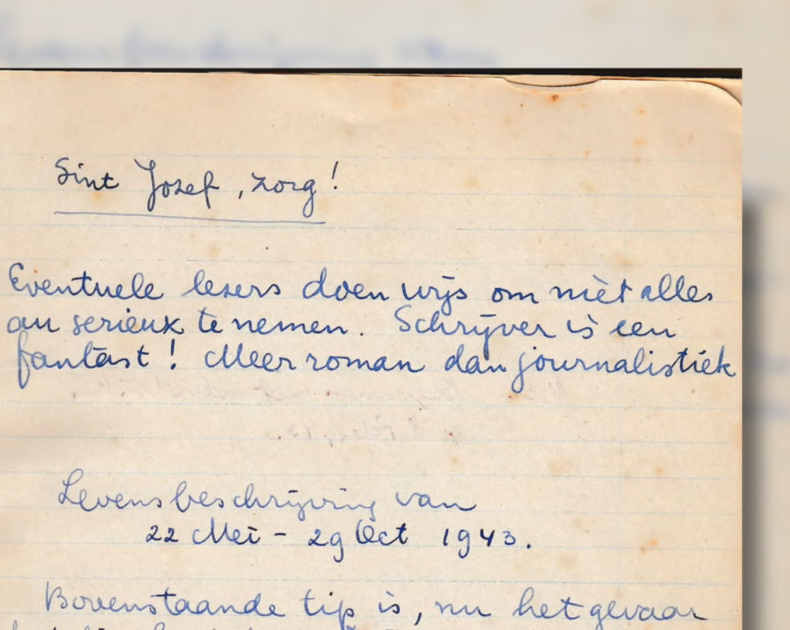 Sint Jozef, zorg!
Eventuele lezers doen wijs om niet alles
au serieux te nemen. Schrijver is een
fantast! Meer roman dan journalistiek
Levensbeschrijving van
22 Mei - 29 Oct 1943.
Bovenstaande tip is, nu het gevaar